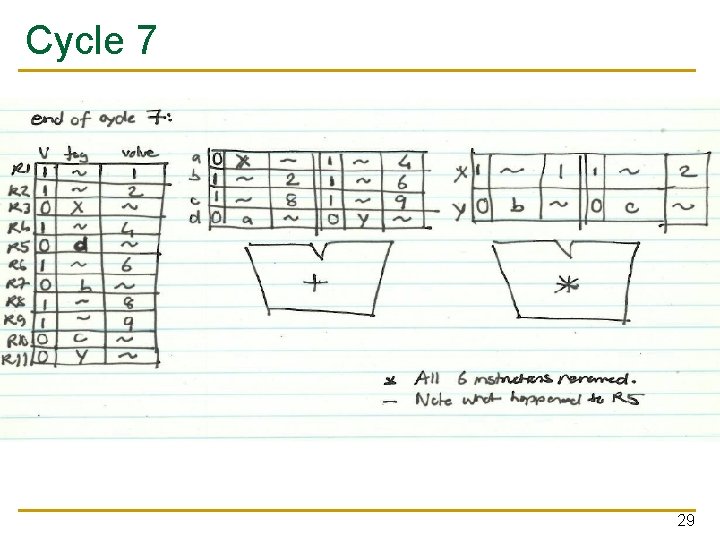 Cycle 7
end of cycle 7:
V tag value
R1 1 ~ 1
R2 1 ~ 2
R3 0 X ~
R4 1 ~ 4
R5 0 d ~
R6 1 ~ 6
R7 0 b ~
R8 1 ~ 8
R9 1 ~ 9
R10 0 c ~
R11 0 Y ~
a 0 X ~ 1 ~ 4
b 1 ~ 2 1 ~ 6
c 1 ~ 8 1 ~ 9
d 0 a ~ 0 Y ~
X 1 ~ 1 1 ~ 2
Y 0 b ~ 0 c ~
+
*
* All 6 instructions renamed.
— Note what happened to R5
29